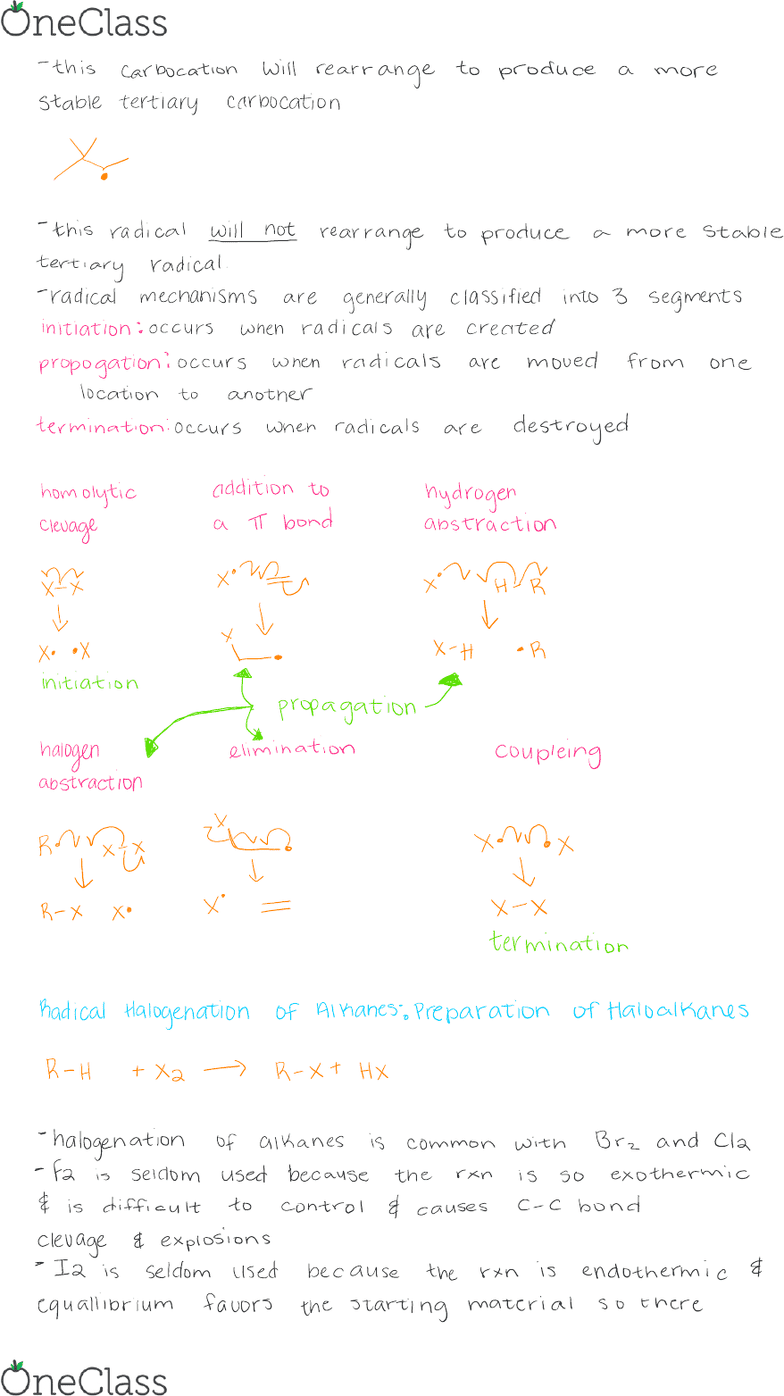 OneClass
-this carbocation will rearrange to produce a more
stable tertiary carbocation
-this radical will not rearrange to produce a more stable
tertiary radical.
-radical mechanisms are generally classified into 3 segments
initiation: occurs when radicals are created
propogation: occurs when radicals are moved from one
location to another
termination: occurs when radicals are destroyed
homolytic
clevage
addition to
a π bond
hydrogen
abstraction
X-X
X•
X• H-R
X• •X
X
X-H •R
initiation
propagation
halogen
abstraction
elimination
coupleing
R• X-X
X
X• •X
R-X X•
X•
X-X
termination
Radical Halogenation of Alkanes: Preparation of Haloalkanes
R-H + X2 → R-X + HX
-halogenation of alkanes is common with Br2 and Cl2
-F2 is seldom used because the rxn is so exothermic
& is difficult to control & causes C-C bond
clevage & explosions
-I2 is seldom used because the rxn is endothermic &
equallibrium favors the starting material so there
OneClass